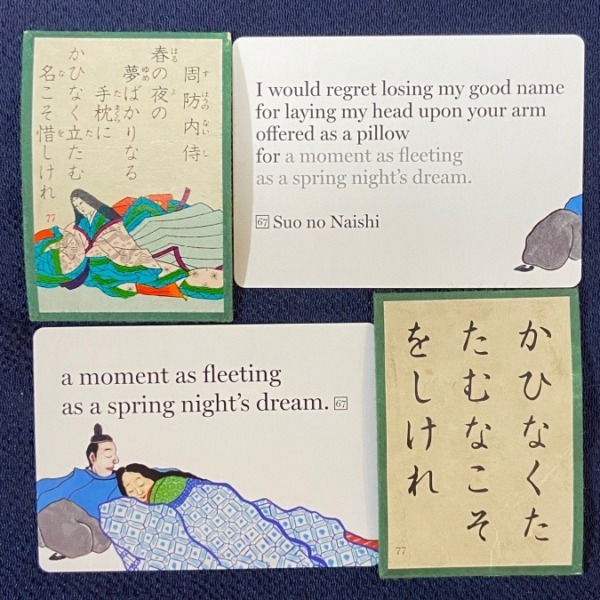 周防内侍
春の夜の
夢ばかりなる
手枕に
かひなく立たむ
名こそ惜しけれ
77
I would regret losing my good name
for laying my head upon your arm
offered as a pillow
for a moment as fleeting
as a spring night's dream.
67 Suo no Naishi
a moment as fleeting
as a spring night's dream. 67
かひなくた
たむなこそ
をしけれ
77